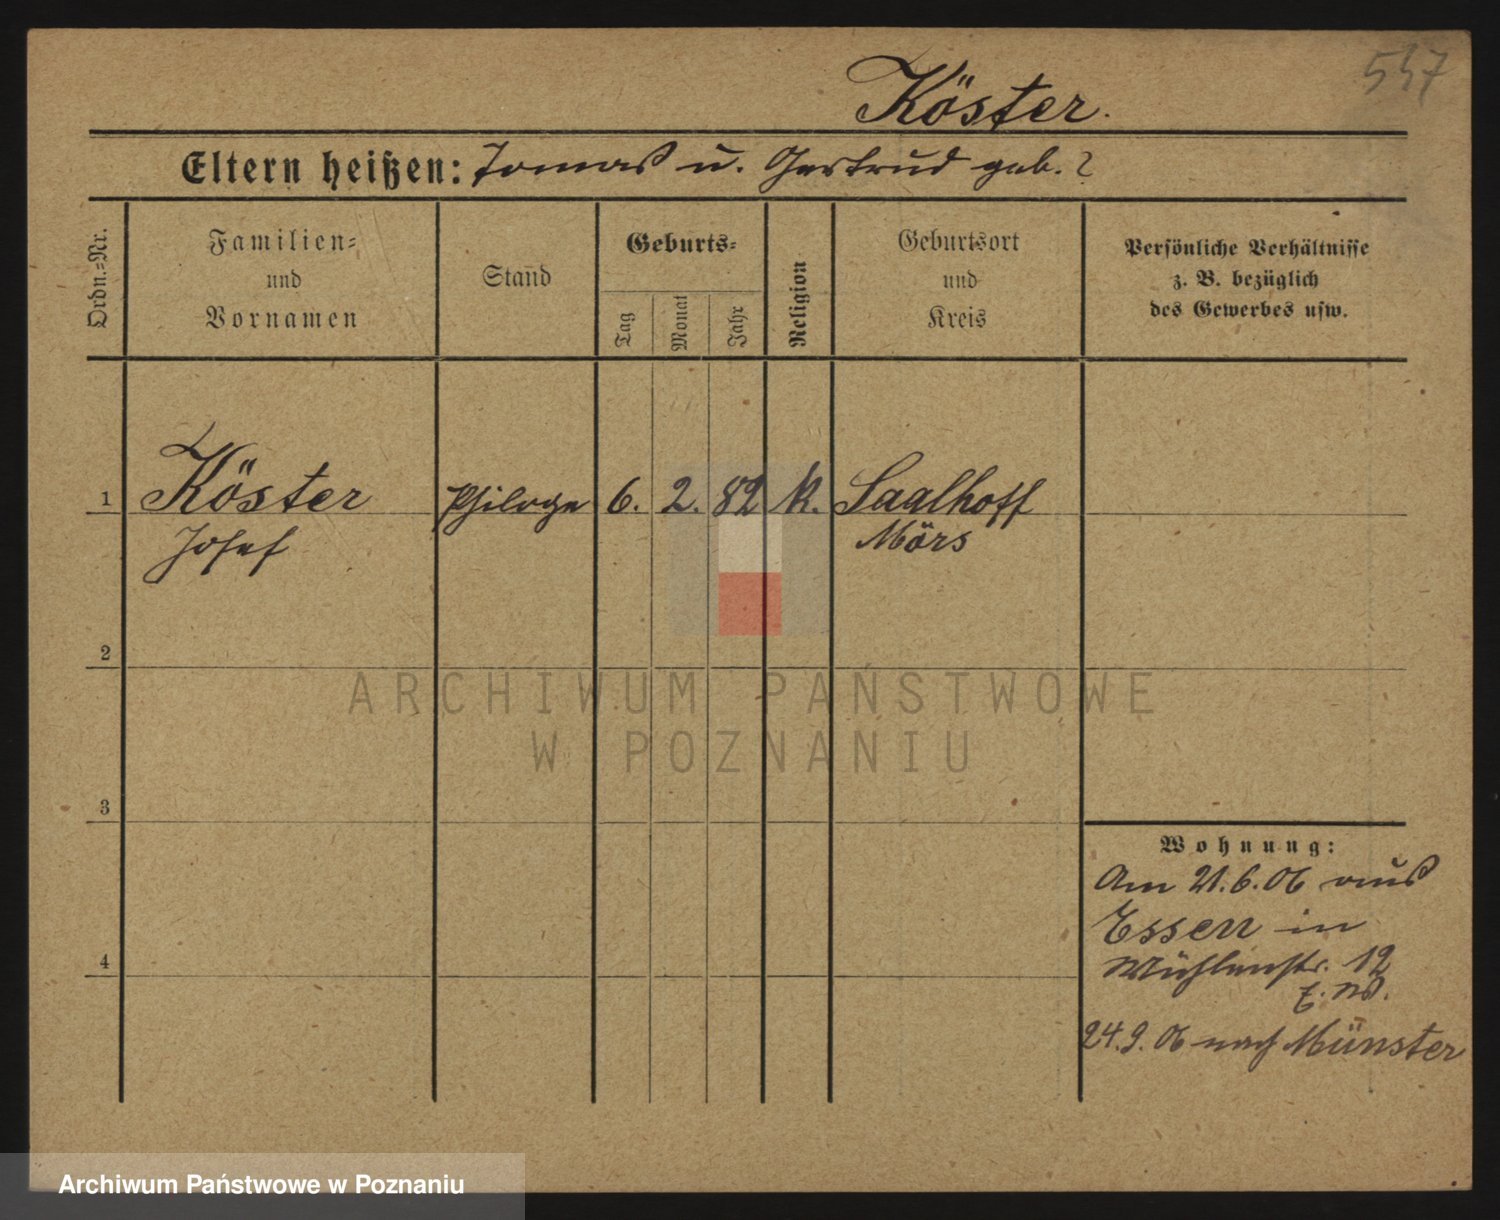 Köster.
547
Eltern heißen: Tomas u. Gertrud geb. ?
Ordn.=Nr.
Familien=
und
Vornamen
Stand
Geburts=
Tag
Monat
Jahr
Religion
Geburtsort
und
Kreis
Persönliche Verhältnisse
z. B. bezüglich
des Gewerbes usw.
1 Köster Philoge 6. 2. 82 k. Saalhoff
Josef Mörs
2
ARCHIWUM PAŃSTWOWE
W POZNANIU
3
Wohnung:
Am 21.6.06 aus
Essen in
4
Mühlenstr. 12
24.9.06 nach Münster
Archiwum Państwowe w Poznaniu